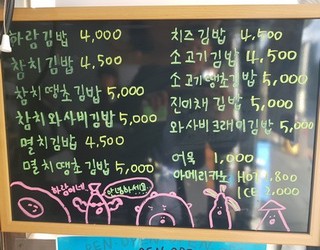 하람김밥 4,000
참치김밥 4,500
참치땡초김밥 5,000
참치와사비김밥 5,000
멸치김밥 4,500
멸치땡초김밥 5,000
치즈김밥 4,500
소고기김밥 4,500
소고기땡초김밥 5,000
진미채김밥 5,000
와사비크래미김밥 5,000
어묵 1,000
아메리카노 HOT 1,800
ICE 2,000
하람이네
안녕하세요